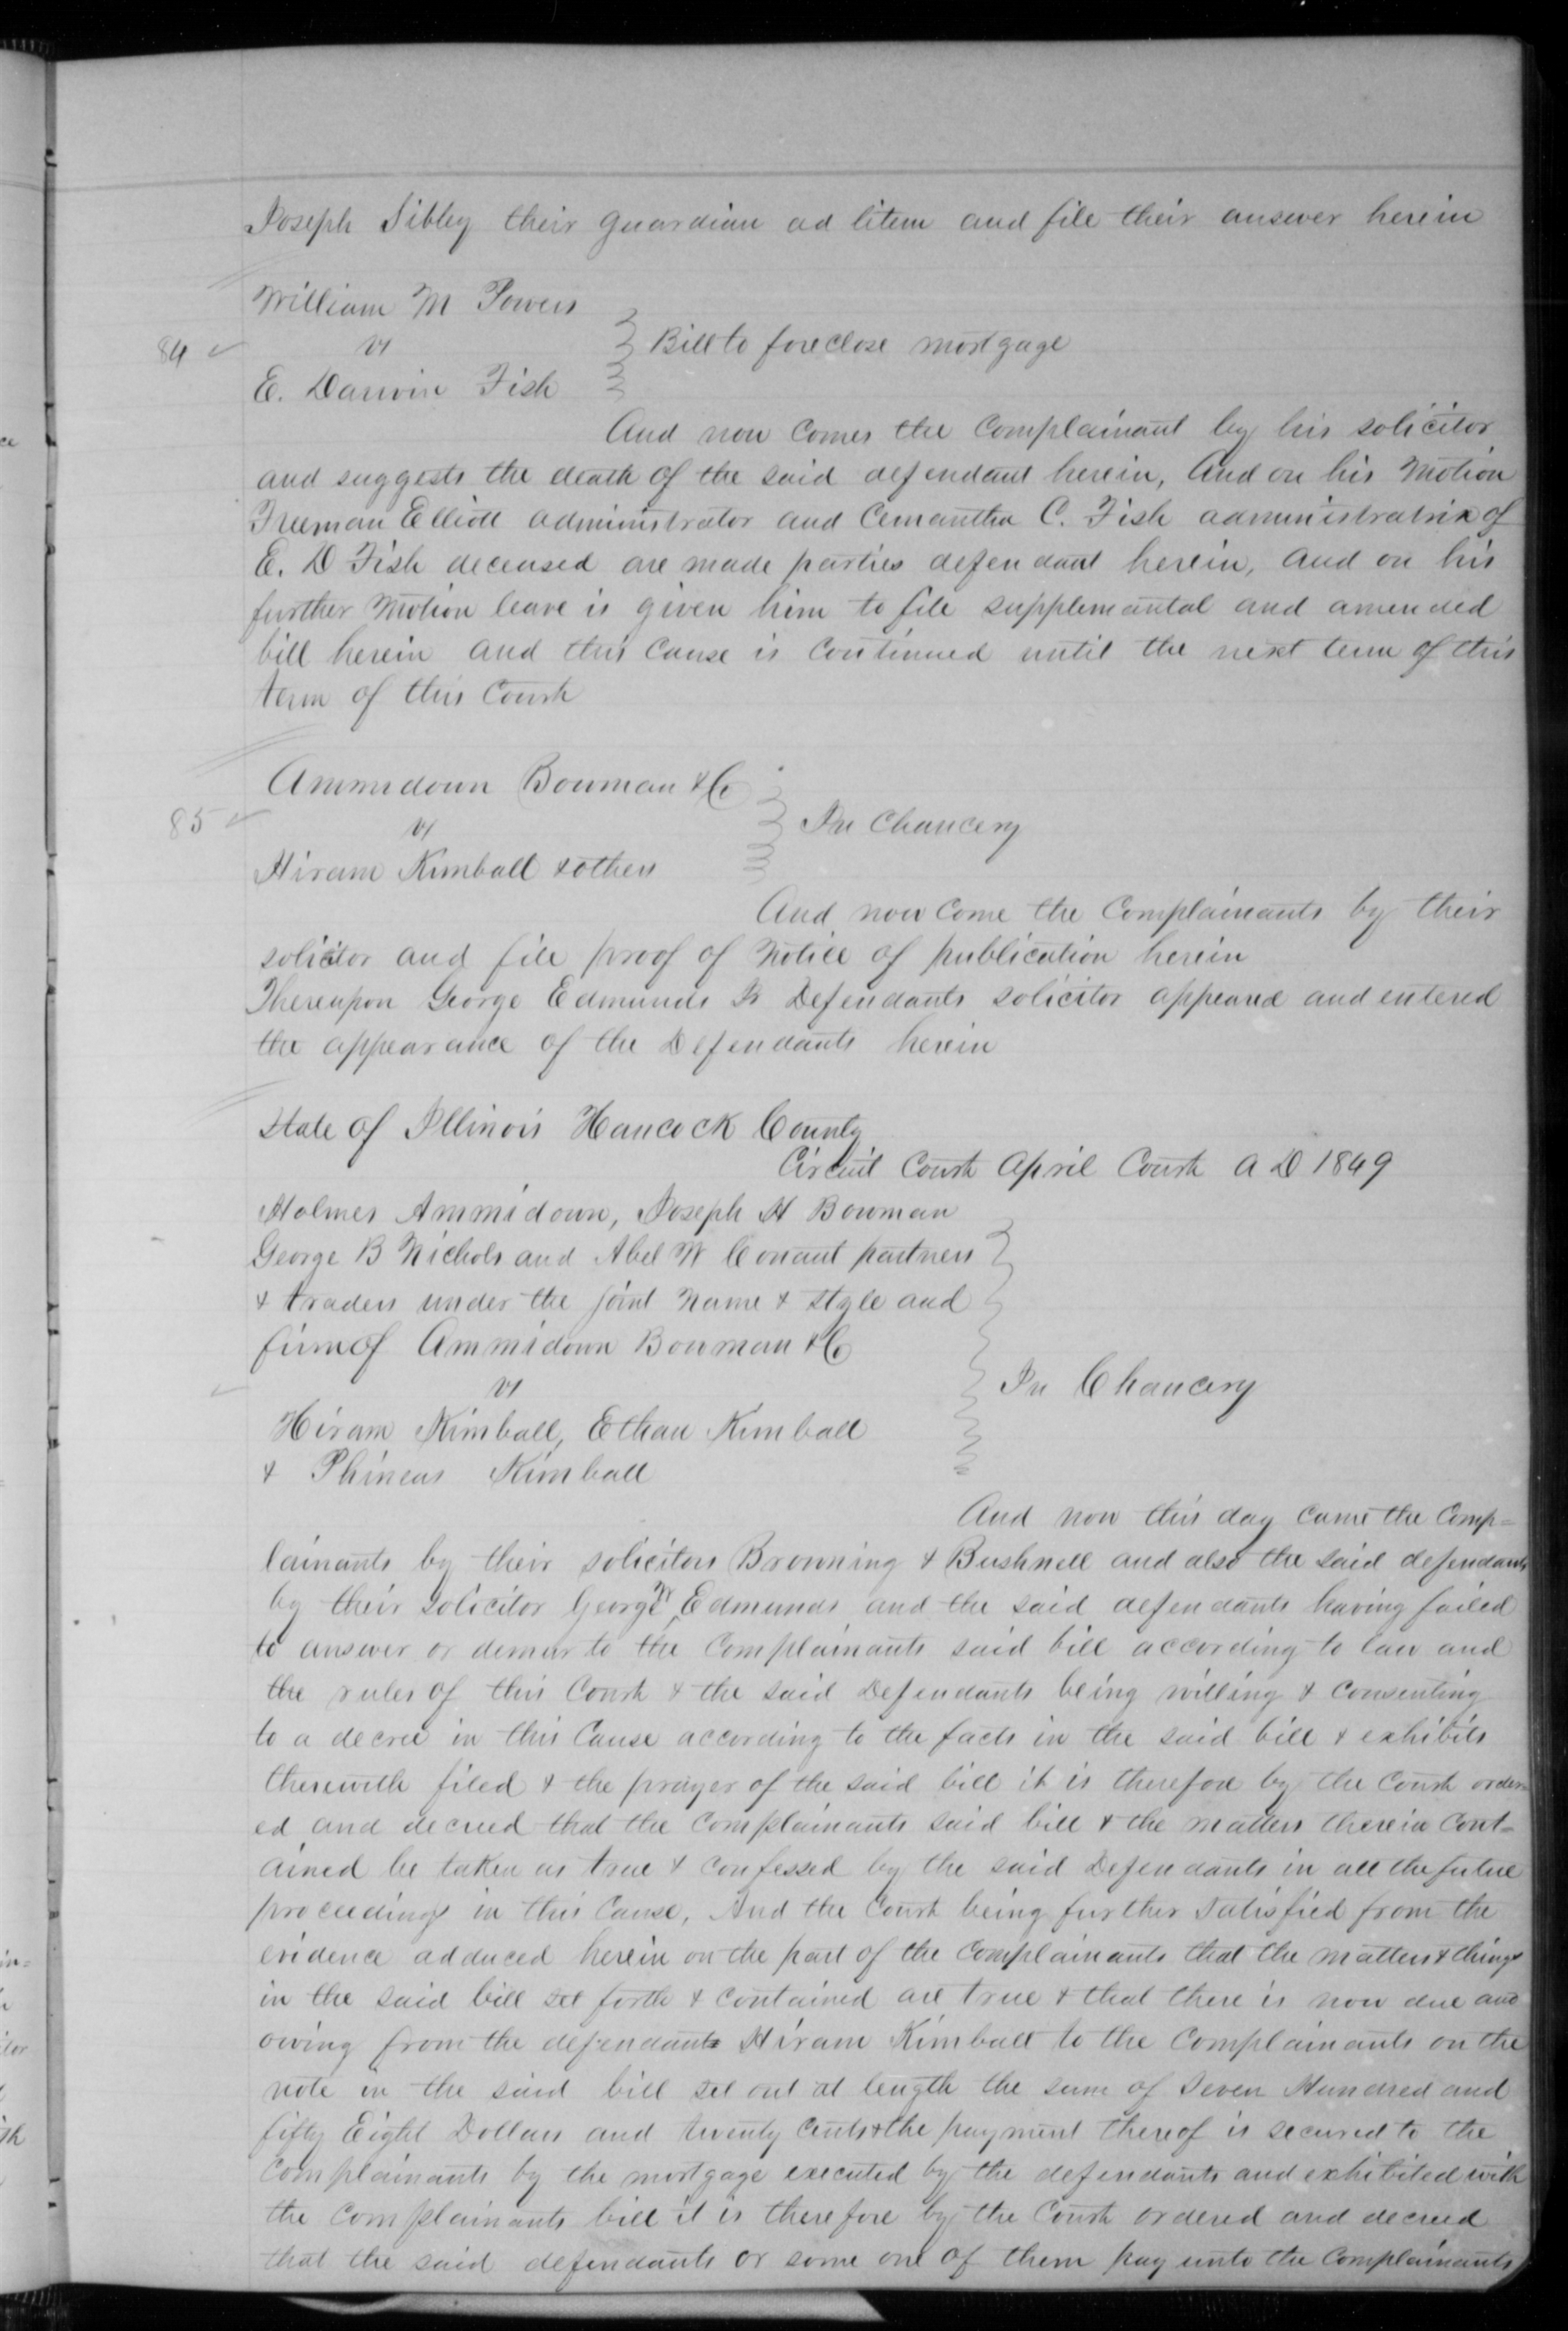 Joseph Sibley their guardian ad litem and file their answer herein
William M Powers
84 vs } Bill to foreclose mortgage
E. Darwin Fish
And now comes the complainant by his solicitor
and suggests the death of the said defendant herein, And on his motion
Freeman Elliott administrator and Cemantha C. Fish administratrix of
E. D Fish deceased are made parties defendant herein, and on his
further motion leave is given him to file supplemantal and amended
bill herein and this cause is continued until the next term of this
term of this Court
Ammidown Bowman & Co
85 vs } In Chancery
Hiram Kimball & others
And now come the Complainants by their
solicitor and file proof of notice of publication herein
Thereupon George Edmunds Jr Defendants solicitor appeared and entered
the appearance of the Defendants herein
State of Illinois Hancock County
Circuit Court April Court A D 1849
Holmes Ammidown, Joseph H Bowman
George B Nichols and Abel W Conant partners
& traders under the joint name & style and
firm of Ammidown Bowman & Co
vs } In Chancery
Hiram Kimball, Ethan Kimball
& Phineas Kimball
And now this day came the Comp=
lainants by their solicitors Browning & Bushnell and also the said defendants
by their solicitor George Jr Edmunds and the said defendants having failed
to answer or demur to the Complainants said bill according to law and
the rules of this Court & the said Defendants being willing & consenting
to a decree in this Cause according to the facts in the said bill & exhibits
therewith filed & the prayer of the said bill it is therefore by the Court order=
ed and decreed that the Complainants said bill & the matters therein cont=
ained be taken as true & confessed by the said Defendants in all the future
proceedings in this Cause, And the Court being further satisfied from the
evidence adduced herein on the part of the Complainants that the matters & things
in the said bill set forth & contained are true & that there is now due and
owing from the defendants Hiram Kimball to the Complainants on the
note in the said bill set out at length the sum of Seven Hundred and
fifty Eight Dollars and twenty cents & the payment thereof is secured to the
Complainants by the mortgage executed by the defendants and exhibited with
the Complainants bill it is therefore by the Court ordered and decreed
that the said defendants or some one of them pay unto the Complainants